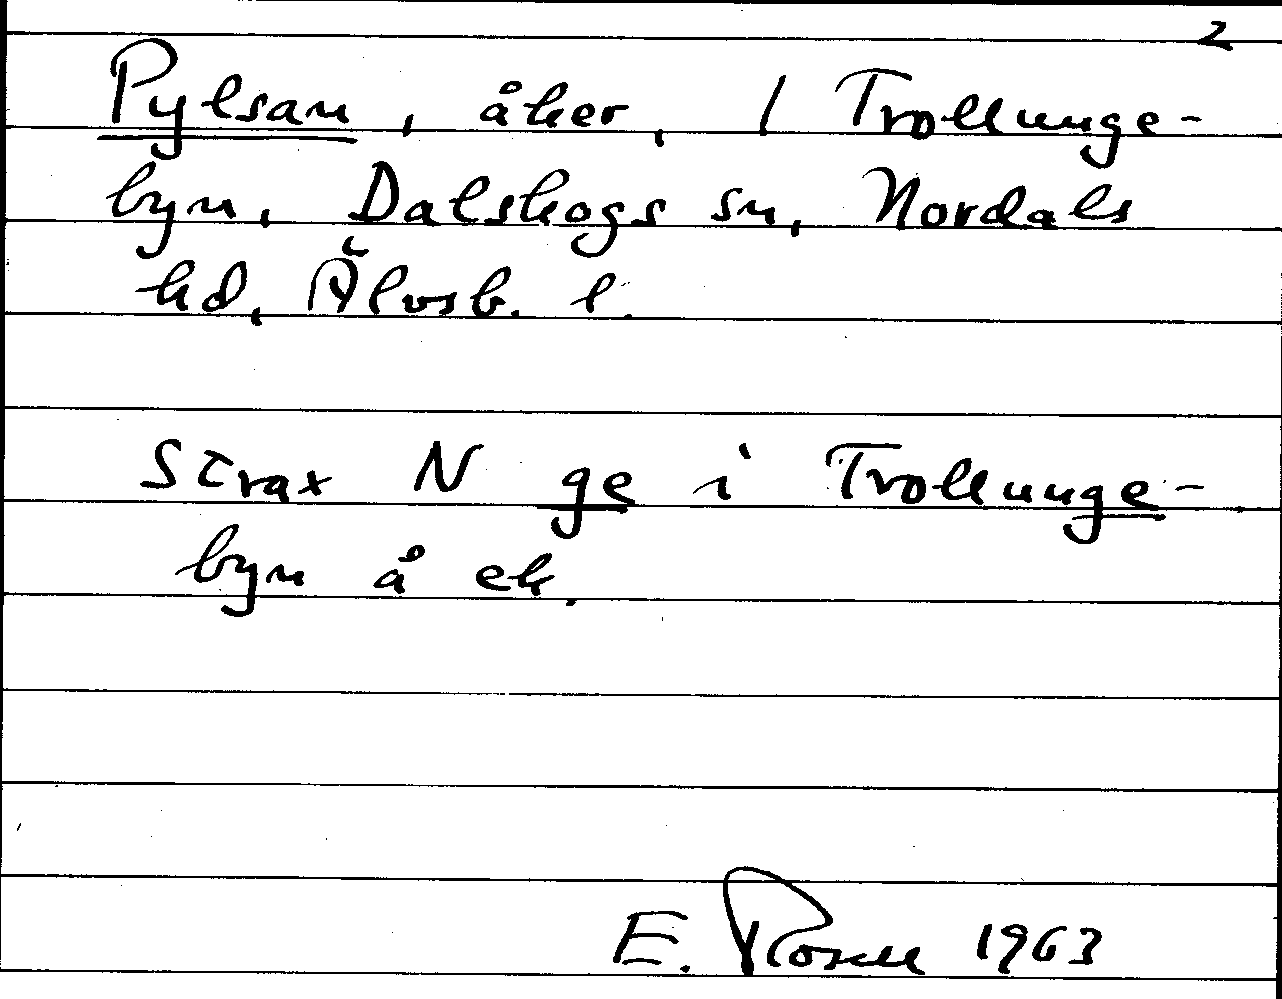 2
Pylsan, åker, 1 Trollunge-
byn, Dalskogs sn, Nordals
hd, Älvsb. l.
Strax N ge i Trollunge-
byn å ek.
E. Rosell 1963